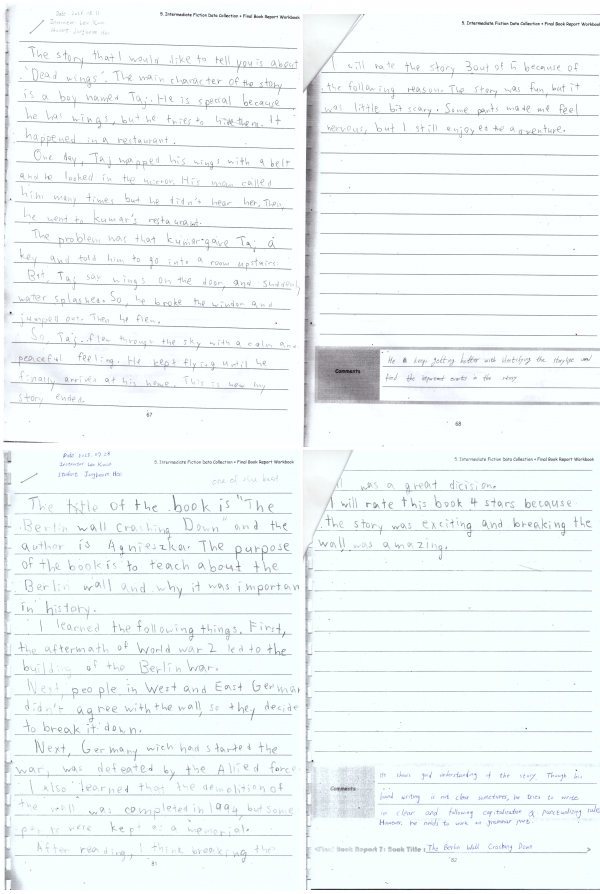 5. Intermediate Fiction Data Collection + Final Book Report Workbook
The story that I would like to tell you is about
"Dead wings". The main character of the story
is a boy named Taj. He is special because
he has wings, but he tries to hide them. It
happened in a restaurant.
One day, Taj wrapped his wings with a belt
and he looked in the mirror. His mom called
him many times but he didn't hear her. Then,
he went to Kumar's restaurant.
The problem was that Kumar gave Taj a
key and told him to go into a room upstairs.
But, Taj saw wings on the door, and suddenly
water splashes. So, he broke the window and
jumped out. Then he flew.
So, Taj flew through the sky with a calm and
peaceful feeling. He kept flying until he
finally arrives at his home. This is how my
story ended.
67
5. Intermediate Fiction Data Collection + Final Book Report Workbook
I will rate the story 3 out of 5 because of
the following reason. The story was fun, but it
was little bit scary. Some parts made me feel
nervous, but I still enjoyed the adventure.
Comments
He keep getting better with identifying the storyline and
find the important events in the story
68
5. Intermediate Fiction Data Collection + Final Book Report Workbook
The title of the book is "The
Berlin wall Crashing Down" and the
author is Agnieszka. The purpose
of the book is to teach about the
Berlin wall and why it was importan
in history.
I learned the following things. First,
the aftermath of World war 2 led to the
building of the Berlin War.
Next, people in West and East German
didn't agree with the wall, so they decide
to break it down.
Next, Germany wich had started the
war, was defeated by the Allied force
I also learned that the demolition of
the wall was completed in 1994, but some
parts were kept as a memorial.
After reading, I think breaking the
81
5. Intermediate Fiction Data Collection + Final Book Report Workbook
ll was a great dicision.
I will rate this book 4 stars because
the story was exciting and breaking the
wall was amazing.
Comments
He shows good understanding of the story. Though his
hand writing is not clear sometimes, he tries to write
in clear and following capitalization & punctuating rules
However he needs to work on grammar part.
<Final Book Report 7: Book Title: The Berlin Wall Crashing Down >
82